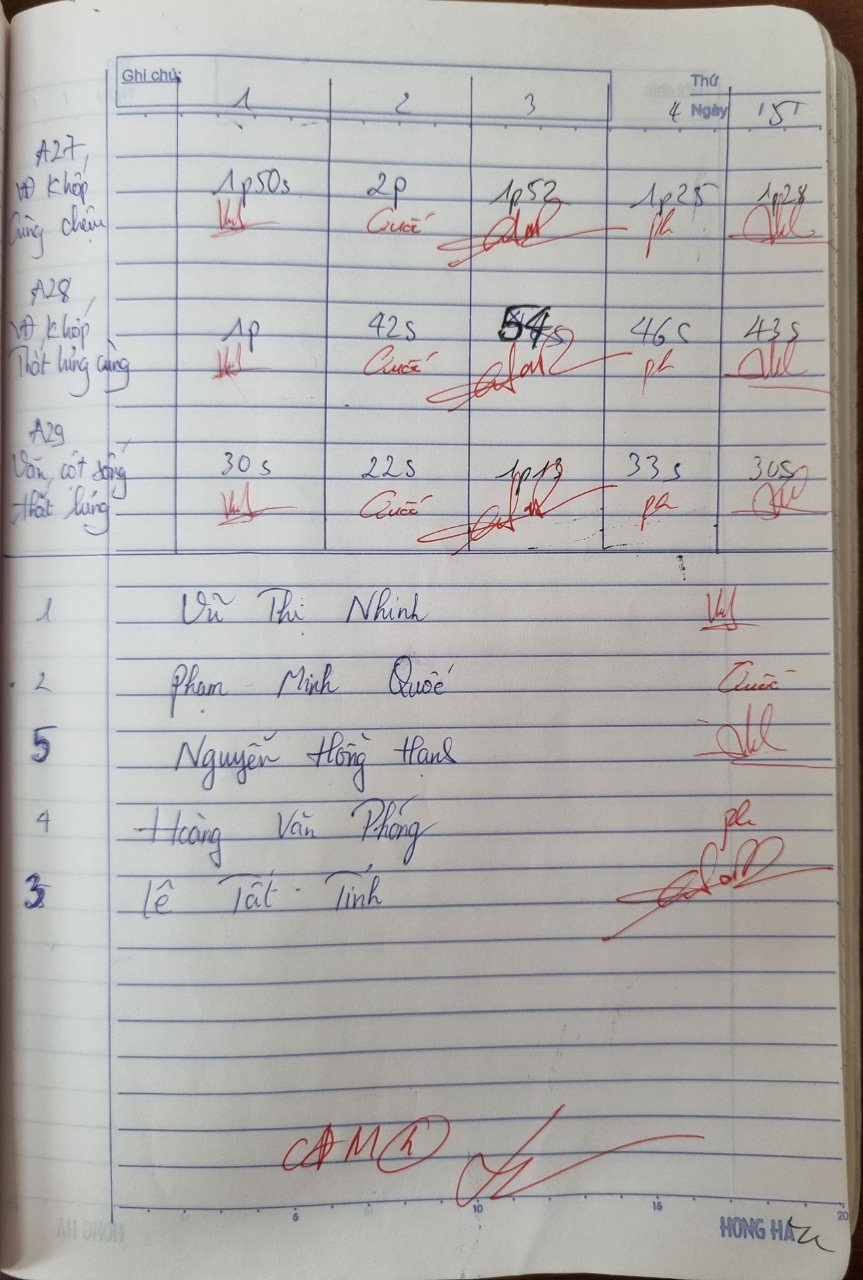 Ghi chú: Thứ
1 2 3 4 Ngày 5
A27,
VĐ Khớp 1p50s 2p 1p52 1p25 1p28
Cùng chậu Quốc ph
A28,
VĐ Khớp 1p 42s 54s 46s 43s
Thắt lưng cùng Quốc ph
A29
Vặn cột sống 30s 22s 1p13 33s 30s
thắt lưng Quốc ph
1 Vũ Thị Nhinh
2 Phạm Minh Quốc Quốc
5 Nguyễn Hồng
4 Hoàng Văn Phóng ph
3 Lê Tất Tính
CAM
5 10 15 20
HONG HA